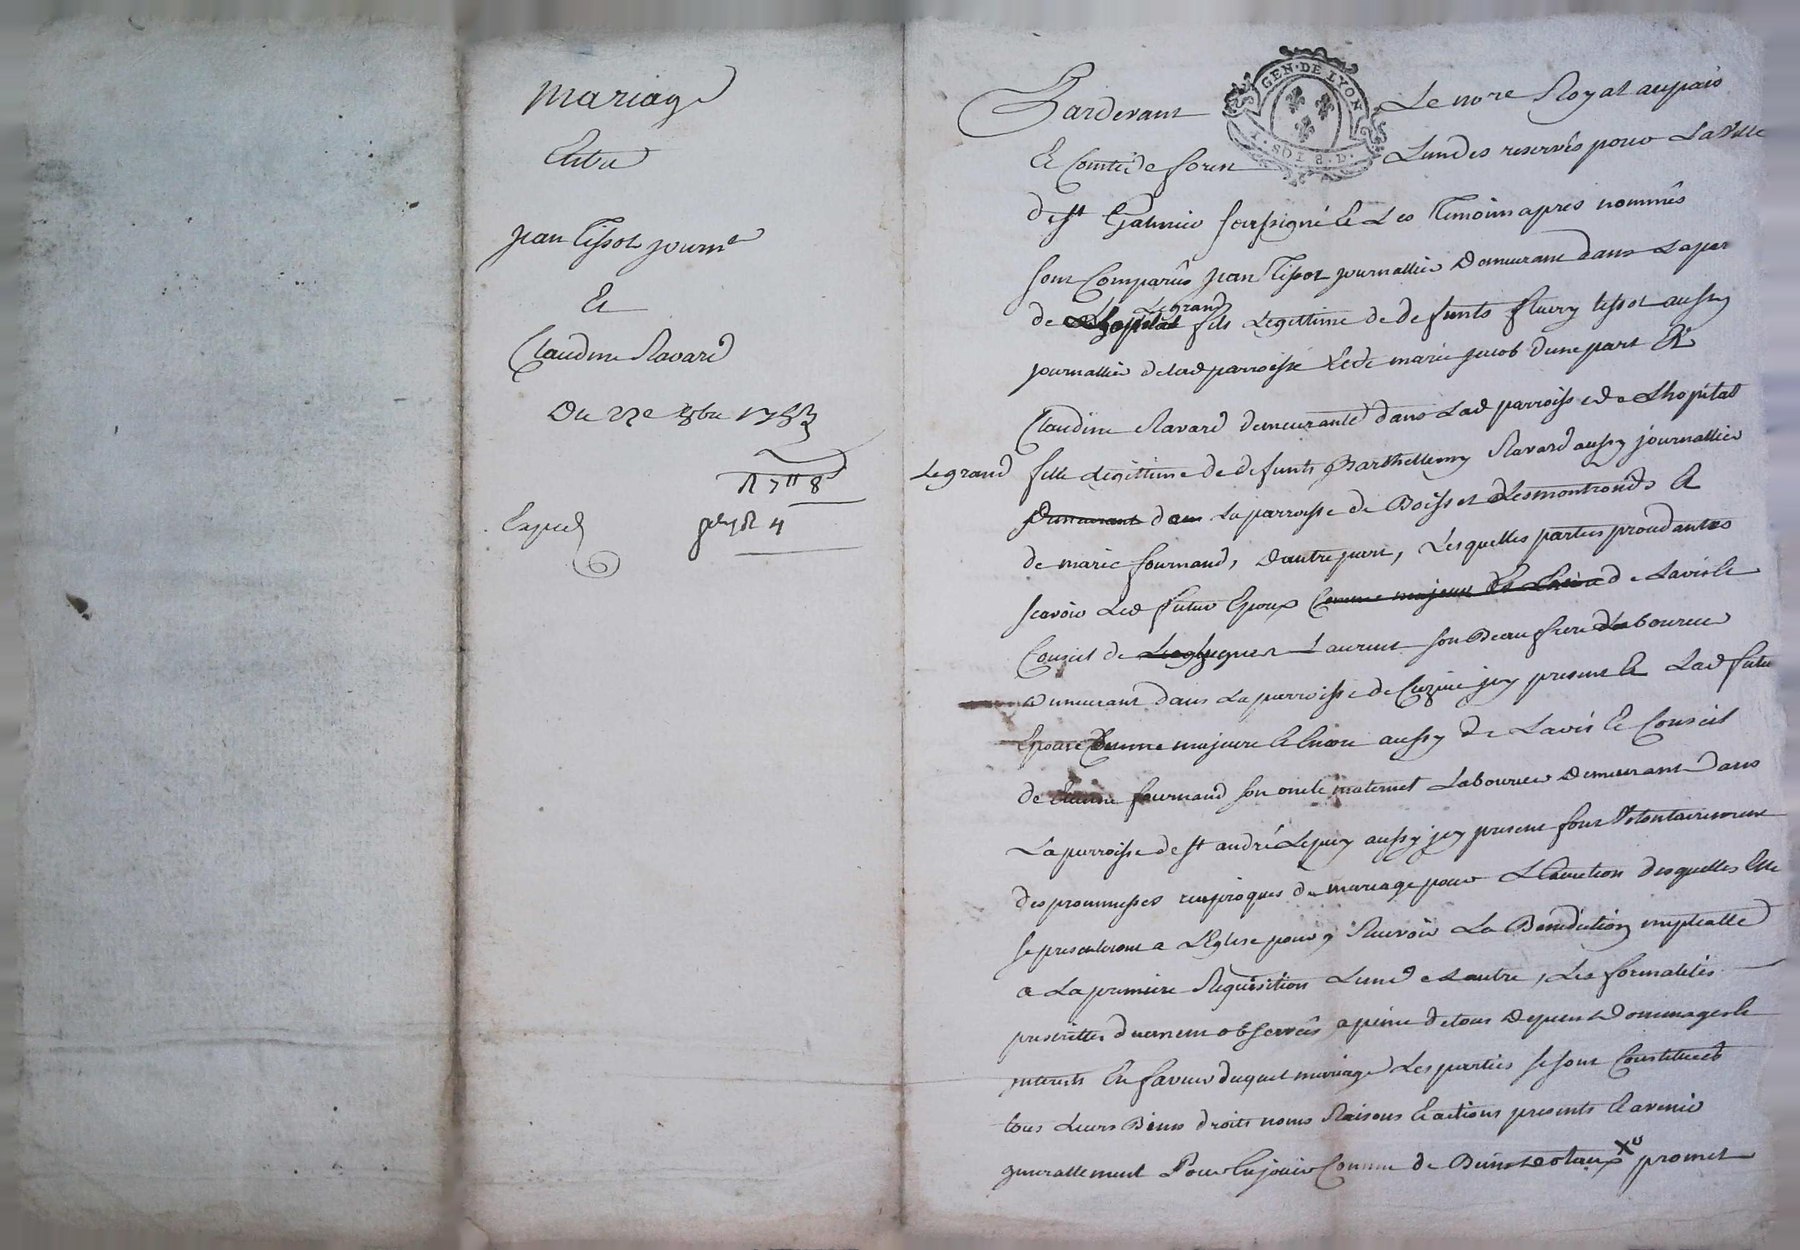 Mariage
Entre
Jean Tissot journer
Et
Claudine Ravard
Du 27e 8bre 1783
R 7tt 8d
Exped
Pardevant Le nore Royal au pais
GEN. DE LYON
1. SOL 8. D.
Et Comté de forest Lundes reservés pour La ville
de St Galmier soussigné et Les Temoins apres nommés
sont Comparus Jean Tissot journallier Demeurant dans La par
Le grand
de Lhopital fils Legittime de defunts fleury tissot aussy
journallier de lad parroisse et de marie jacob dune part Et
Claudine Ravard demeurante dans Lad parroisse de Lhopital
Le grand fille Legittime de defunts Barthellemy Ravard aussy journallier
Demeurant dans La parroisse de Boisset Lesmontronds Et
de marie fournand, Dautre part, Lesquelles parties procedantes
scavoir Led futur Epoux Comme majeur de Lavis et
Conseil de Laurent son Beau frere Laboureur
Demeurant dans La parroisse de Cuzieu jcy present et Lad future
Epouse Comme majeure et Encore aussy de Lavis et Conseil
de Etienne fournand son oncle maternel Laboureur Demeurant Dans
La parroisse de St andré Lepuy aussy jcy present font Volontairement
des promesses reciproques de mariage pour Lexecution desquelles Elles
se presenteront a LEglise pour y Recevoir La Benediction nuptialle
a La premiere Requisition Lune de Lautre, Les formalités
prescrittes duement observées, a peine de tous Depens Dommages et
interests En faveur duquel mariage Les parties se sont Constituées
tous Leurs Biens droits noms Raisons Et actions presents Et avenir
generallement Pour En jouir Comme de Biens dotaux promet